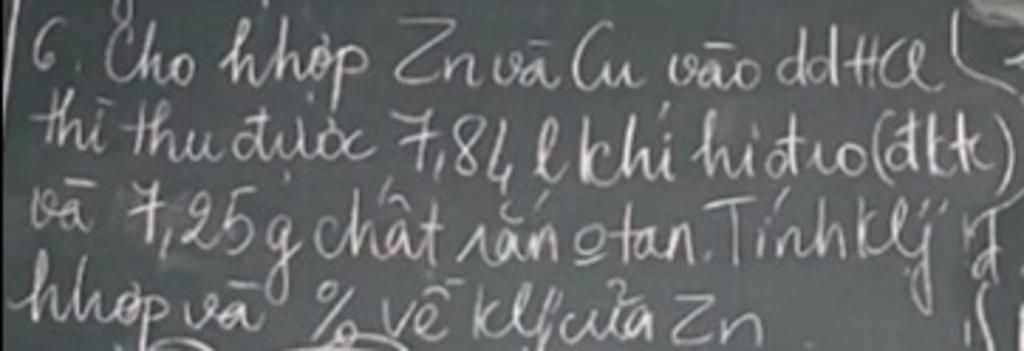 6. Cho hhợp Zn và Cu vào ddHCl
thì thu được 7,84 l khí hiđro (đktc)
và 7,25g chất rắn o tan. Tính klg
hhợp và % về klg của Zn